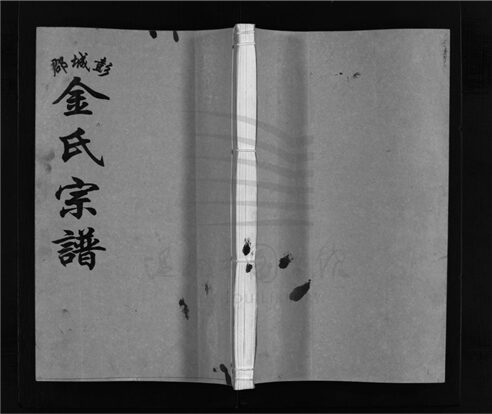 彭城郡
金氏宗譜